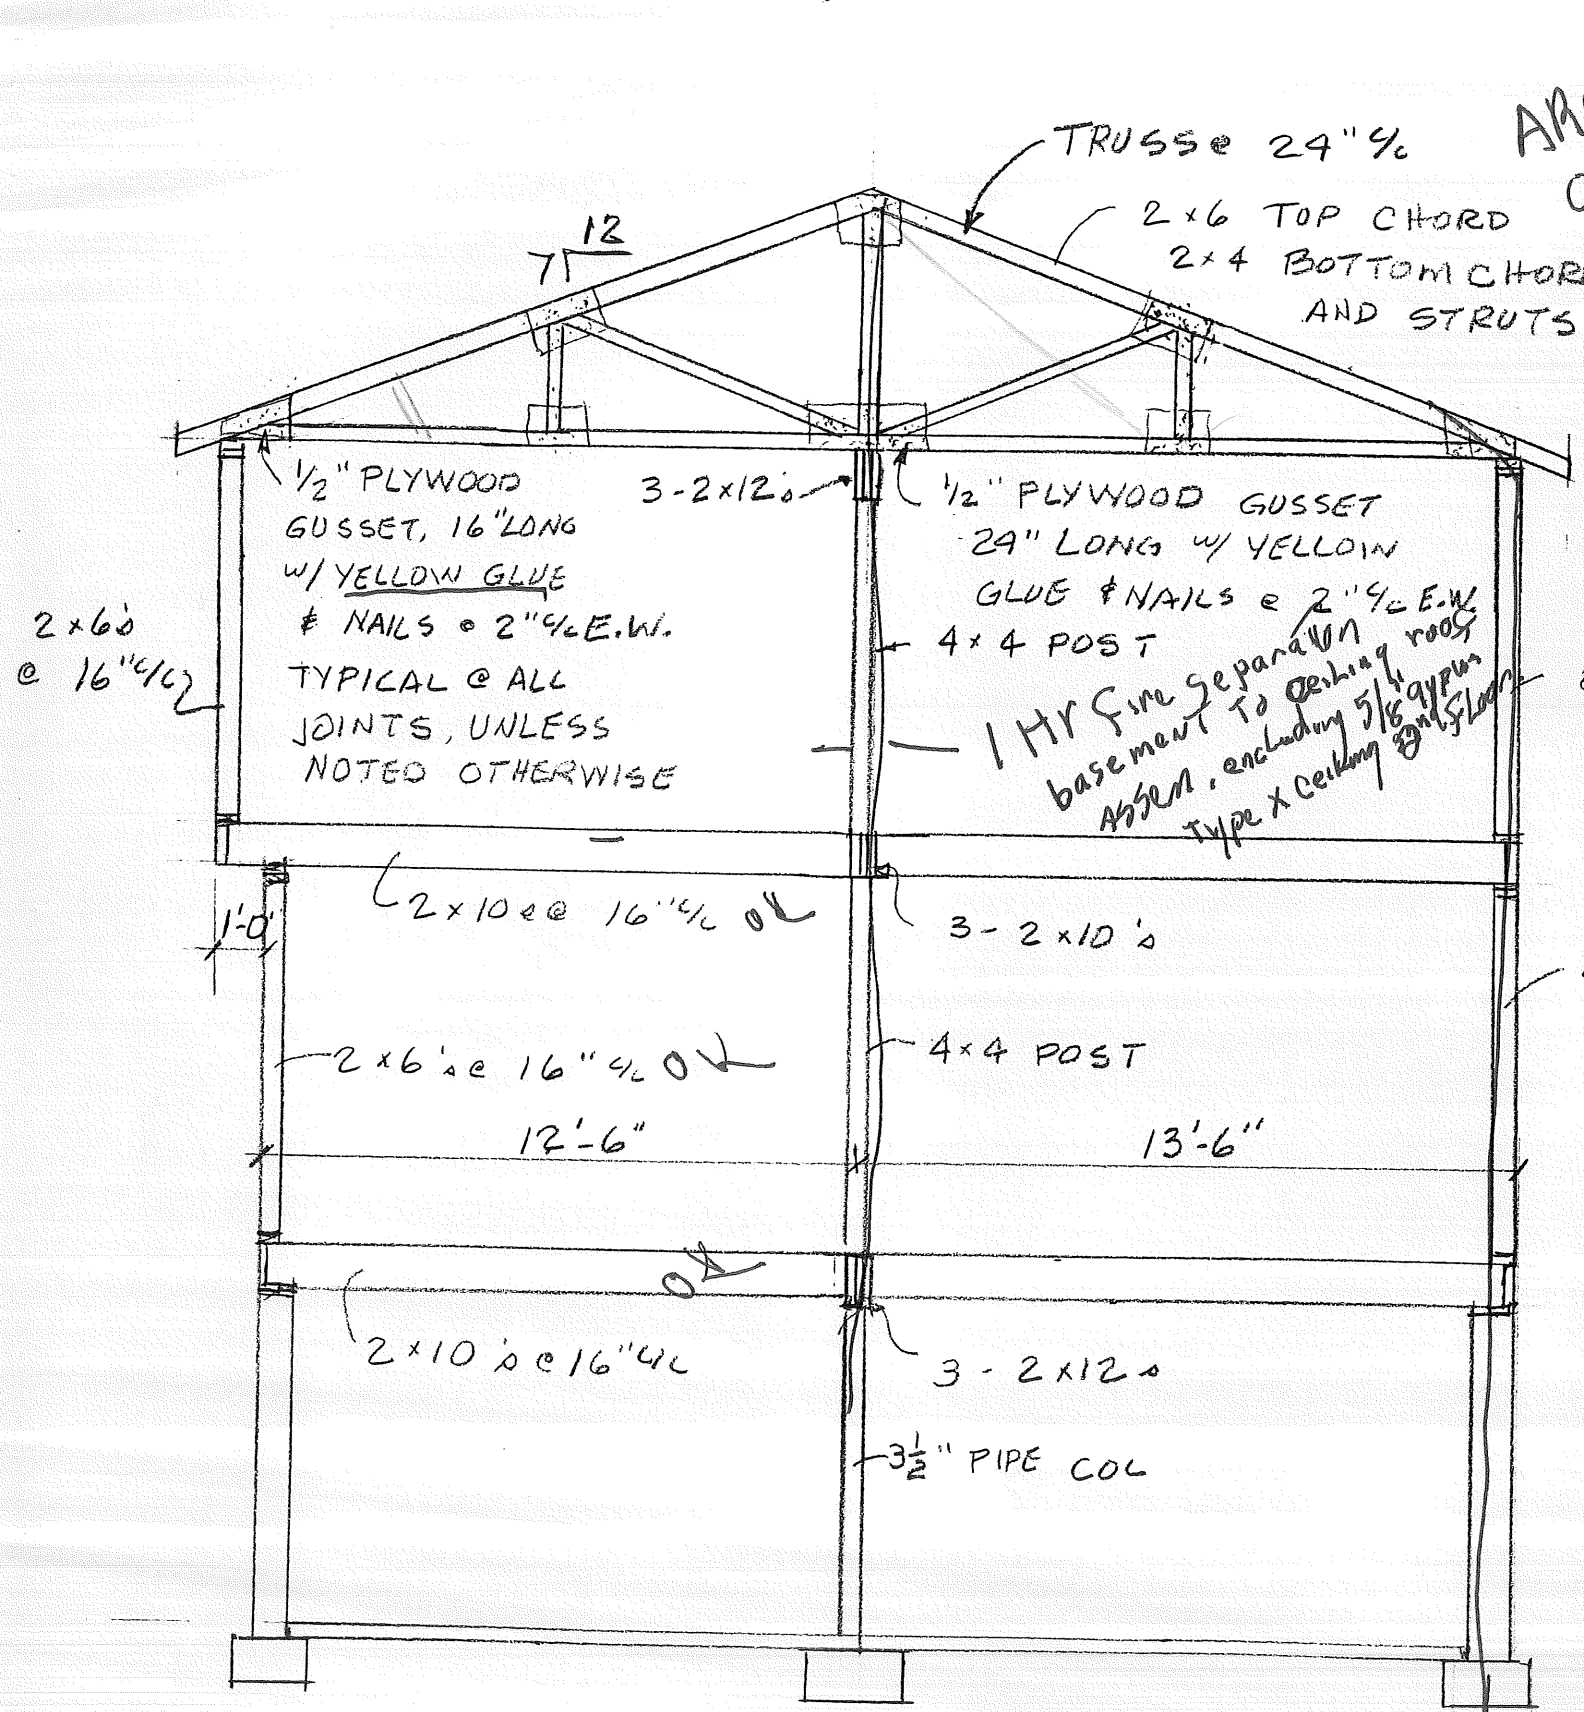 TRUSS @ 24" c/c
2 x 6 TOP CHORD
2 x 4 BOTTOM CHOR
AND STRUTS
12
7
1/2" PLYWOOD
GUSSET, 16" LONG
W/ YELLOW GLUE
& NAILS @ 2" c/c E.W.
TYPICAL @ ALL
JOINTS, UNLESS
NOTED OTHERWISE
3-2x12's
1/2" PLYWOOD GUSSET
24" LONG W/ YELLOW
GLUE & NAILS @ 2" c/c E.W.
4 x 4 POST
2 x 6's
@ 16" c/c
1 Hr Fire Separation
basement To Ceiling roof
Assem, including 5/8 gypsum
Type X Ceiling 2nd Floor
1'-0"
2 x 10 @ @ 16" c/c OK
3 - 2 x 10's
2 x 6's @ 16" c/c OK
4 x 4 POST
12'-6"
13'-6"
OK
2 x 10's @ 16" c/c
3 - 2 x 12s
3 1/2" PIPE COL